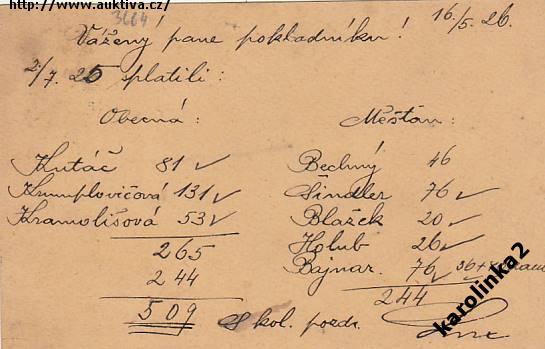 http://www.auktiva.cz/
3664
16./5. 26.
Vážený pane pokladníku!
2/7. 25 splatili:
Obecná:
Kutáč 81 ✓
Krumplovičová 131 ✓
Kramolišová 53 ✓
265
244
509
Měšťan:
Bechný 46
Šindler 76 ✓
Blažek 20 ✓
Holub 26 ✓
Bajnar. 76 ✓
244
S kol. pozdr.
karolinka2